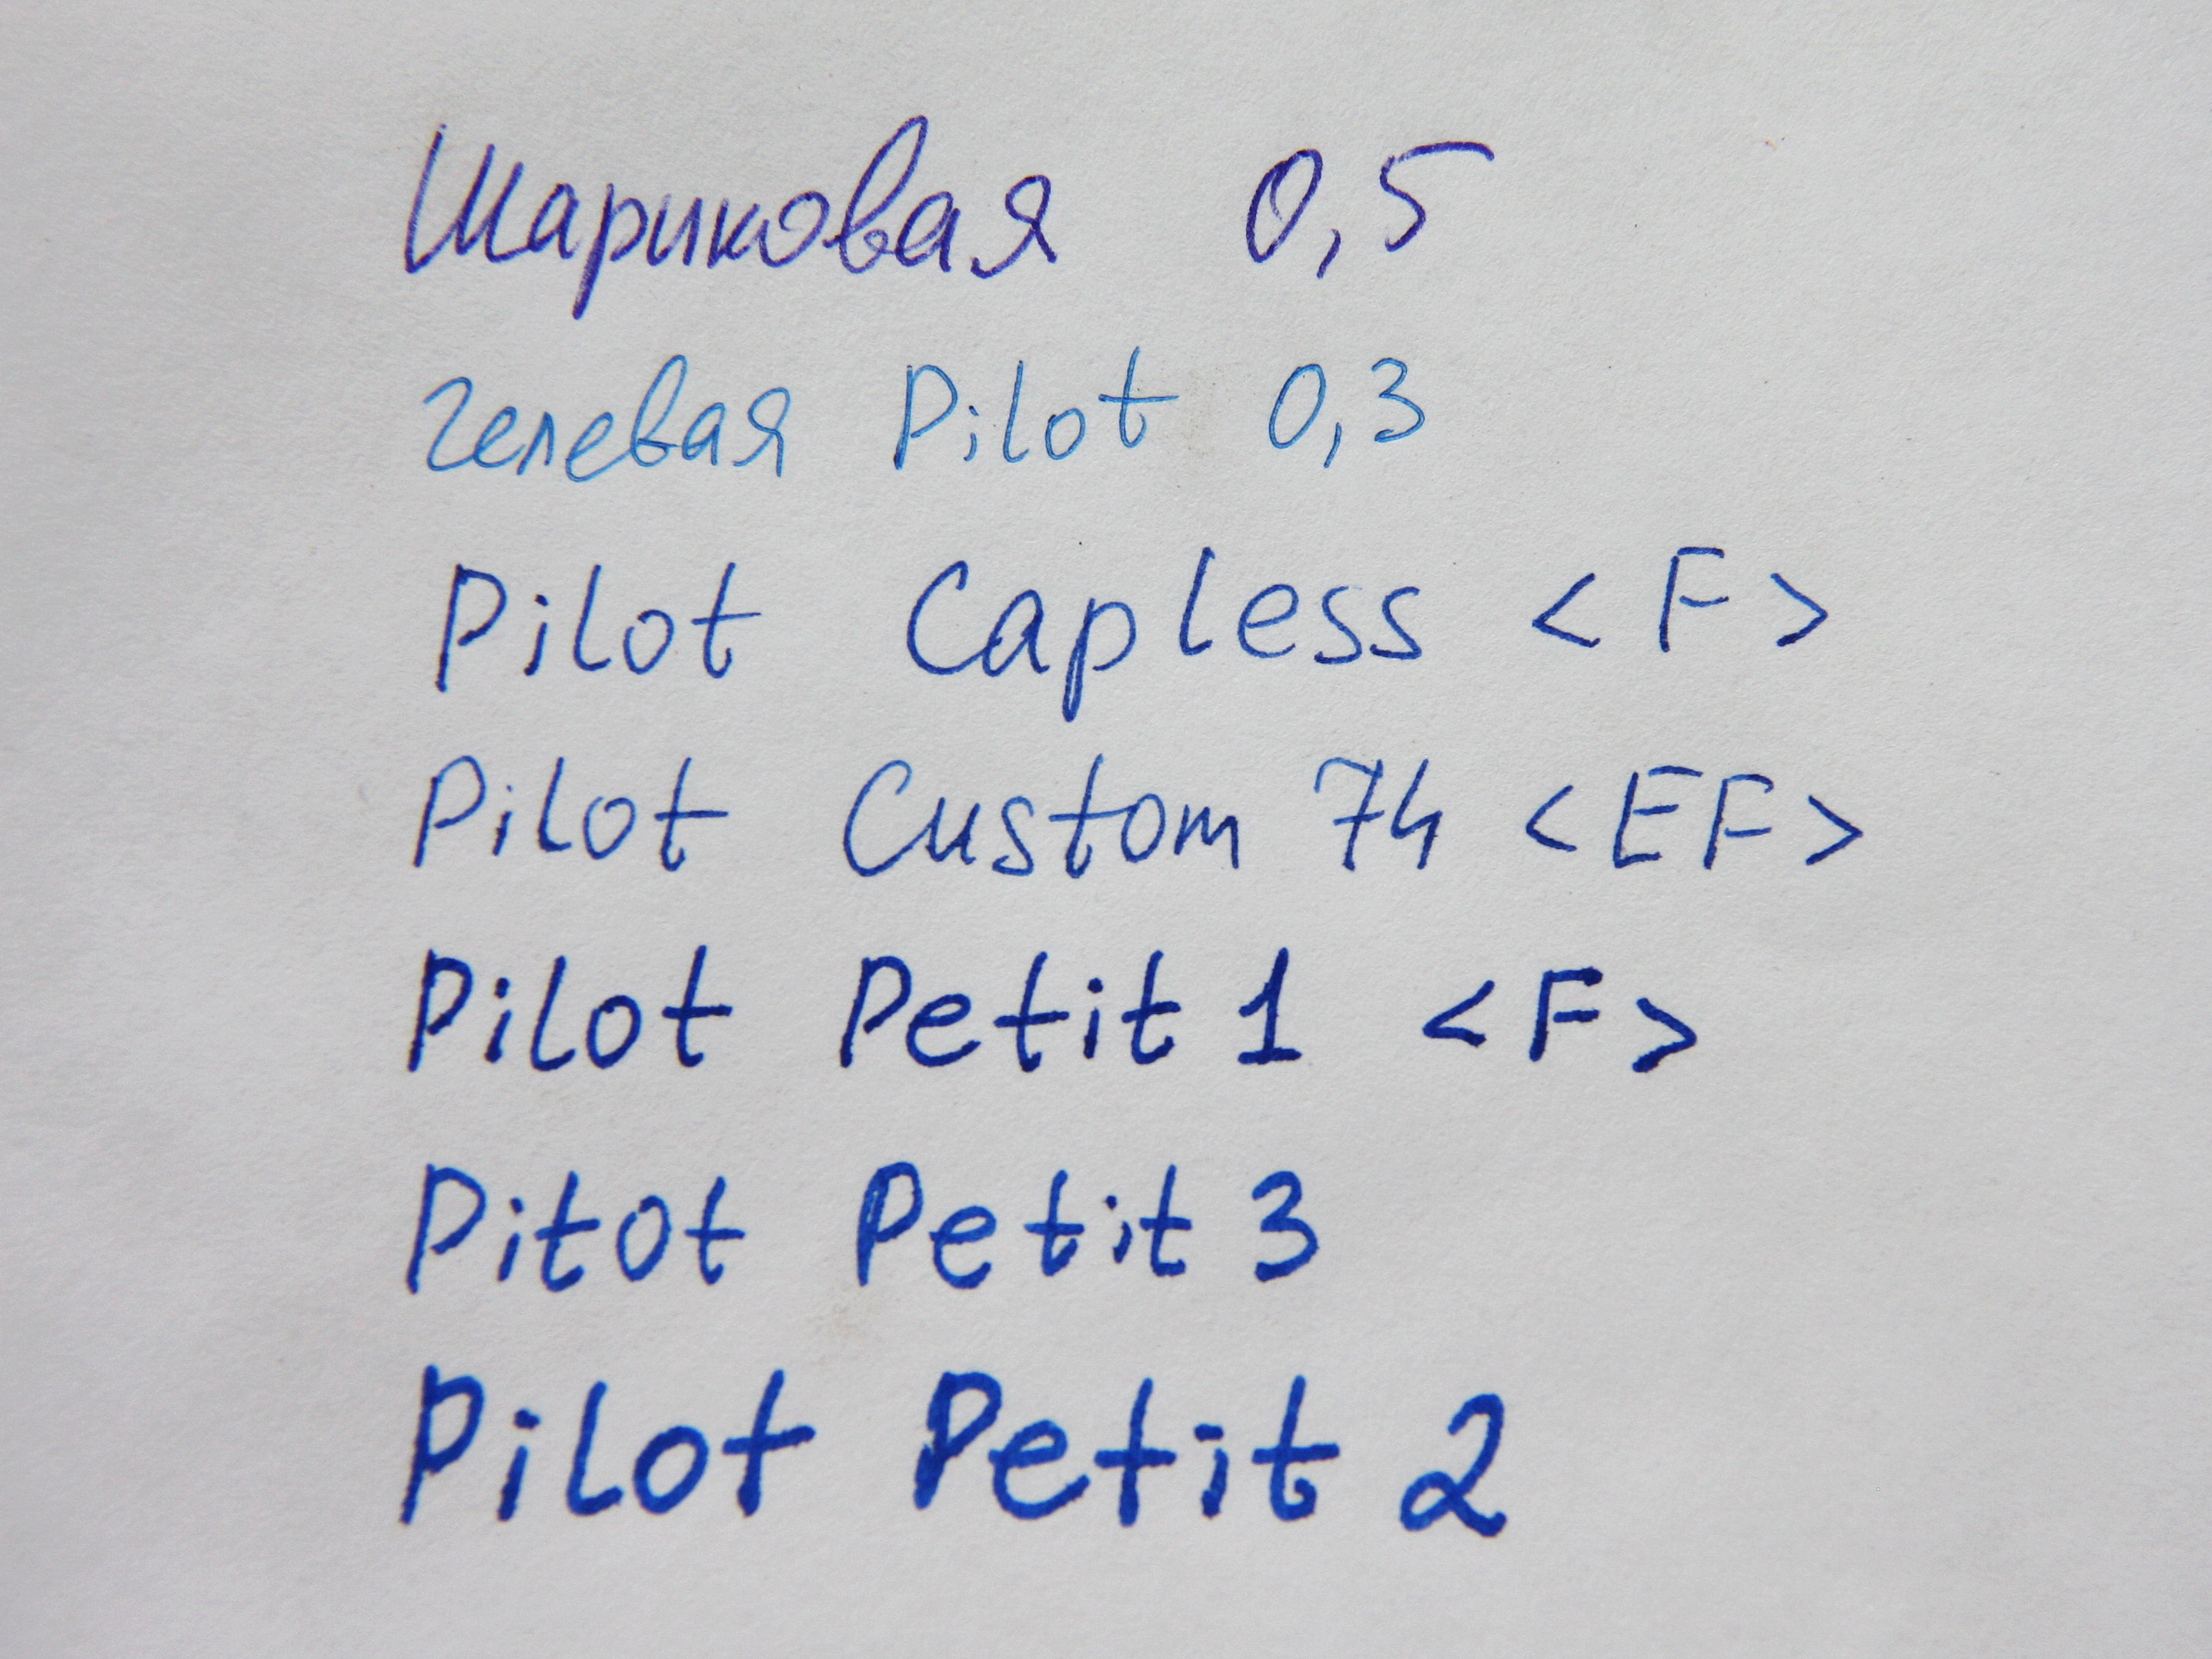 Шариковая 0,5
гелевая Pilot 0,3
Pilot Capless <F>
Pilot Custom 74 <EF>
Pilot Petit 1 <F>
Pitot Petit 3
Pilot Petit 2